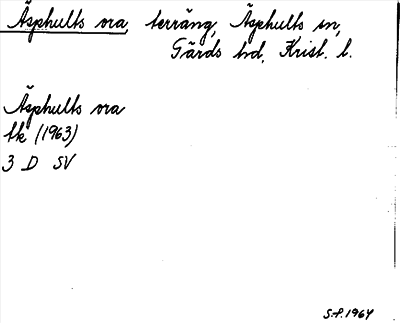 Äsphults ora, terräng, Äsphults sn,
Gärds hd, Krist. l.
Äsphults ora
tk (1963)
3 D SV
S.P. 1964